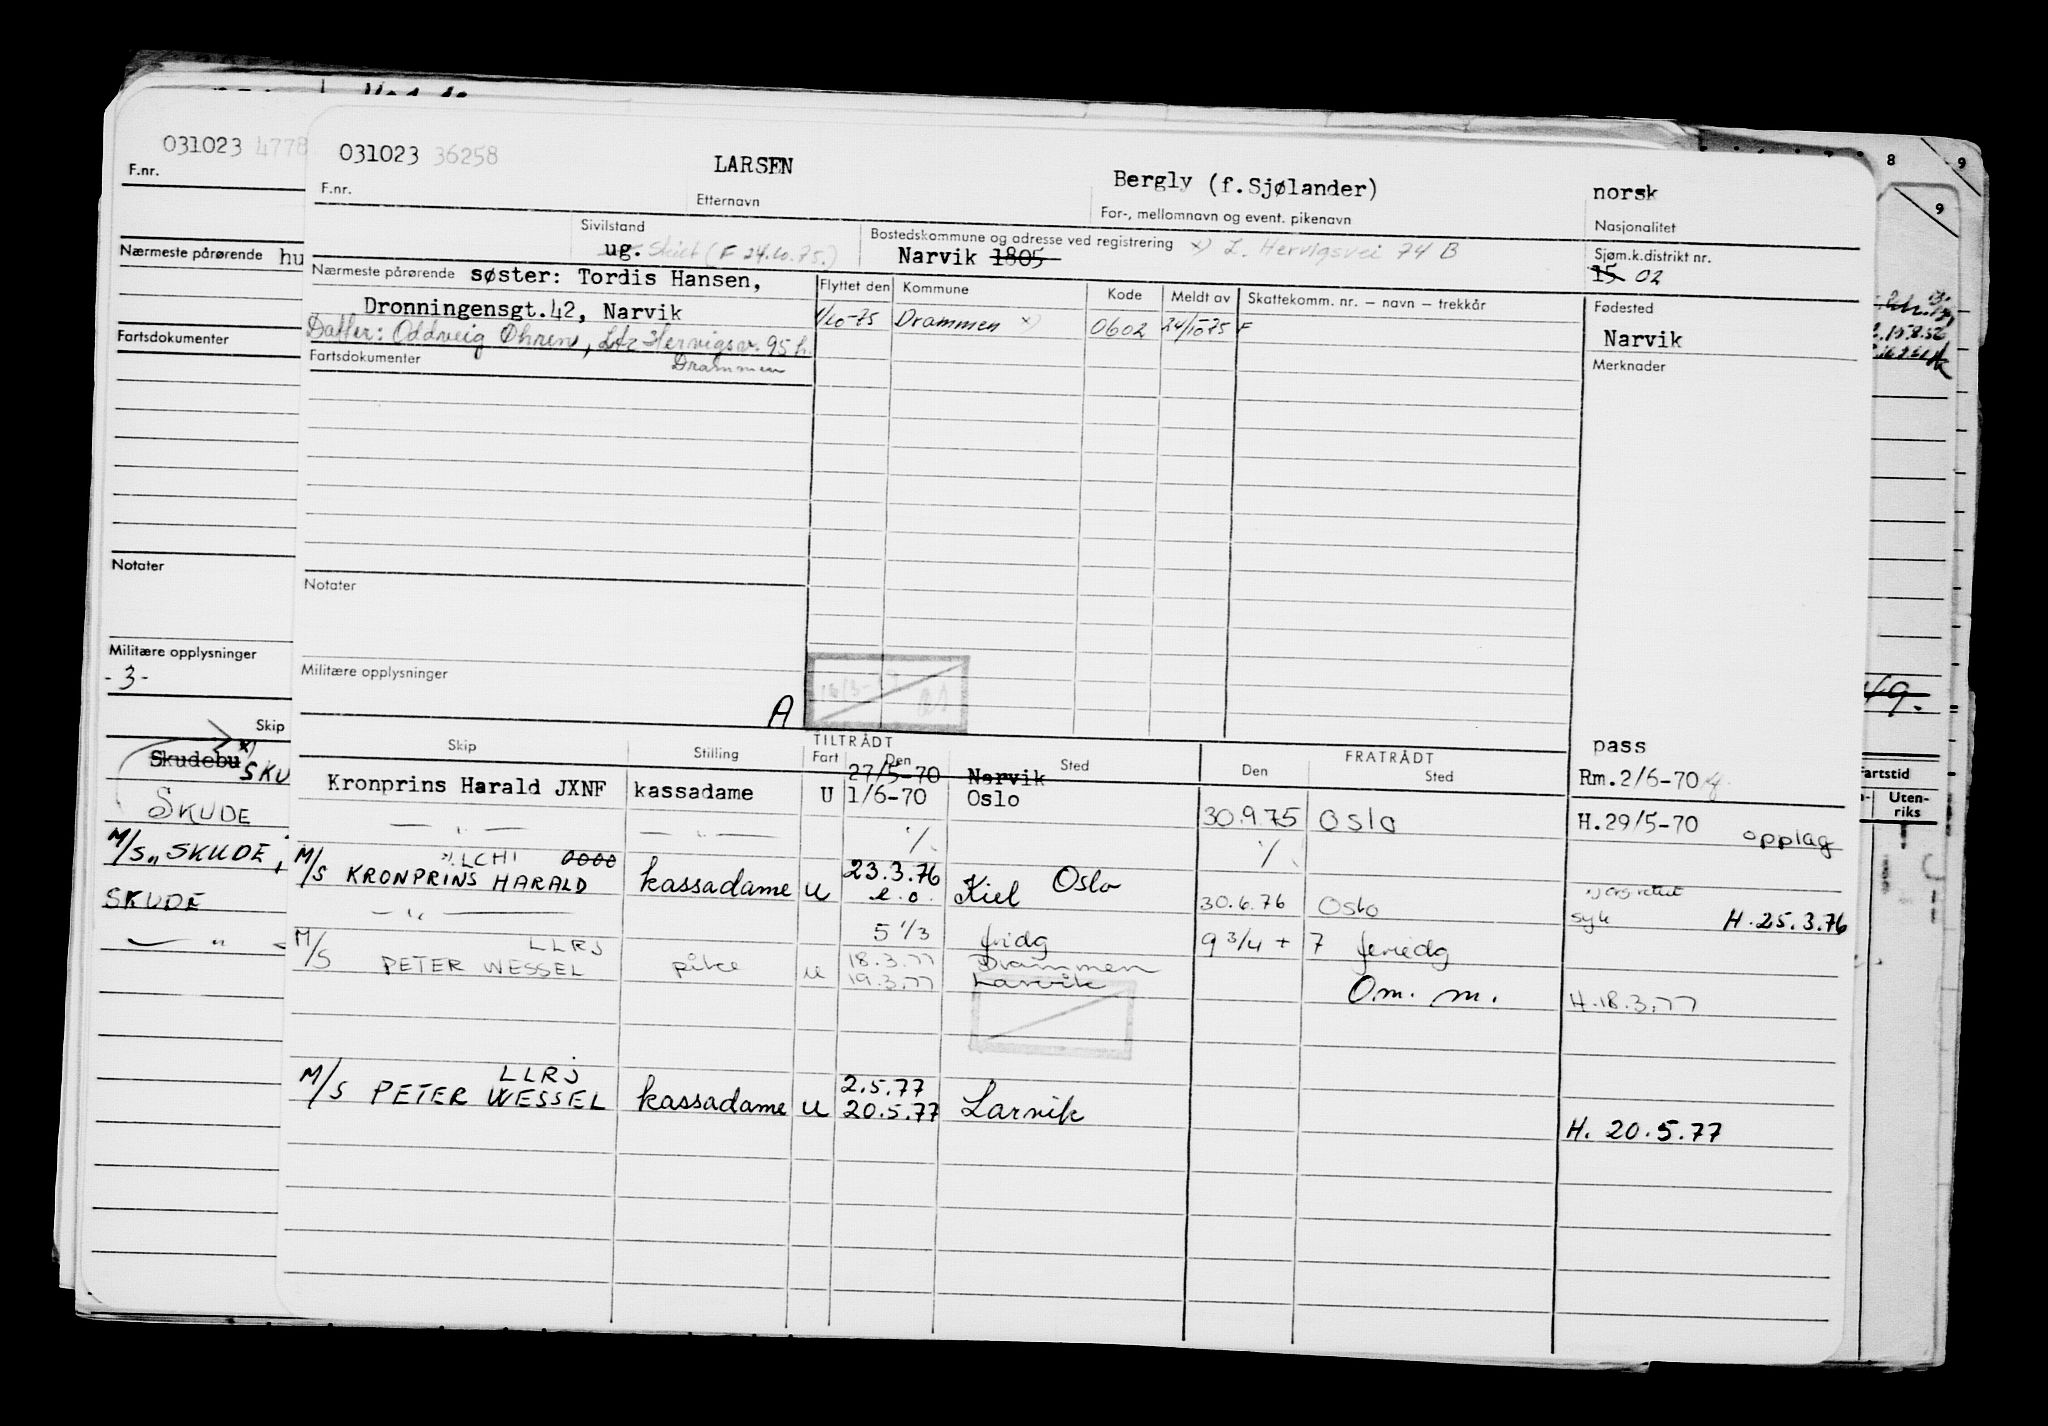 031023 4778
F.nr.
Nærmeste pårørende hu
Fartsdokumenter
Notater
Militære opplysninger
-3-
Skip
Skudebu x) SKU
SKUDE
M/S „SKUDE
SKUDE
— " —
031023 36258
LARSEN
Bergly (f.Sjølander)
norsk
F.nr.
Etternavn
For-, mellomnavn og event. pikenavn
Nasjonalitet
Sivilstand
ug. Skilt (F 24.10.75.)
Bostedskommune og adresse ved registrering x) L. Hervigsvei 74 B
Narvik 1805
Sjøm.k.distrikt nr.
15 02
Nærmeste pårørende søster: Tordis Hansen,
Dronningensgt.42, Narvik
Datter: Oddveig Øhren, Ltz Hervigsv. 95 h.
Drammen
Flyttet den Kommune Kode Meldt av Skattekomm. nr. — navn — trekkår
1/10-75 Drammen x) 0602 24/10-75 F
Fødested
Narvik
Merknader
Fartsdokumenter
Notater
Militære opplysninger
A
TILTRÅDT
FRATRÅDT
Skip Stilling Fart Den Sted Den Sted
pass
27/5-70 Narvik
Kronprins Harald JXNF kassadame U 1/6-70 Oslo
Rm.2/6-70
— " — — " — 1/. 30.9.75 Oslo
H.29/5-70 opplag
LCHI 0000 23.3.76 Oslo 1/.
M/S KRONPRINS HARALD kassadame u e.o. Kiel 30.6.76 Oslo
syk H.25.3.76
— " — 5 1/3 fridg 9 3/4 + 7 feriedg
LLRJ 18.3.77 Drammen
M/S PETER WESSEL pike u 19.3.77 Larvik O.m. m.
H.18.3.77
LLRJ 2.5.77
M/S PETER WESSEL kassadame u 20.5.77 Larvik
H. 20.5.77
8 9
9
49.
artstid
Uten-
riks